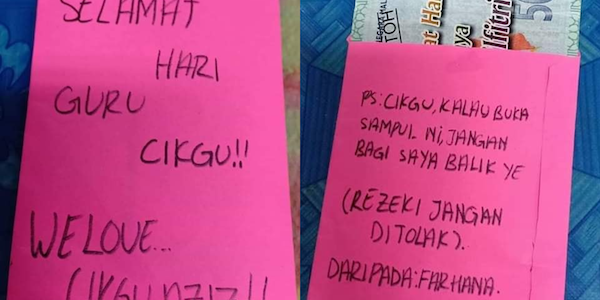 SELAMAT
HARI
GURU
CIKGU!!
WE LOVE...
CIKGU AZIZ!!
PS: CIKGU, KALAU BUKA
SAMPUL NI, JANGAN
BAGI SAYA BALIK YE
(REZEKI JANGAN
DITOLAK).
DARIPADA: FARHANA.